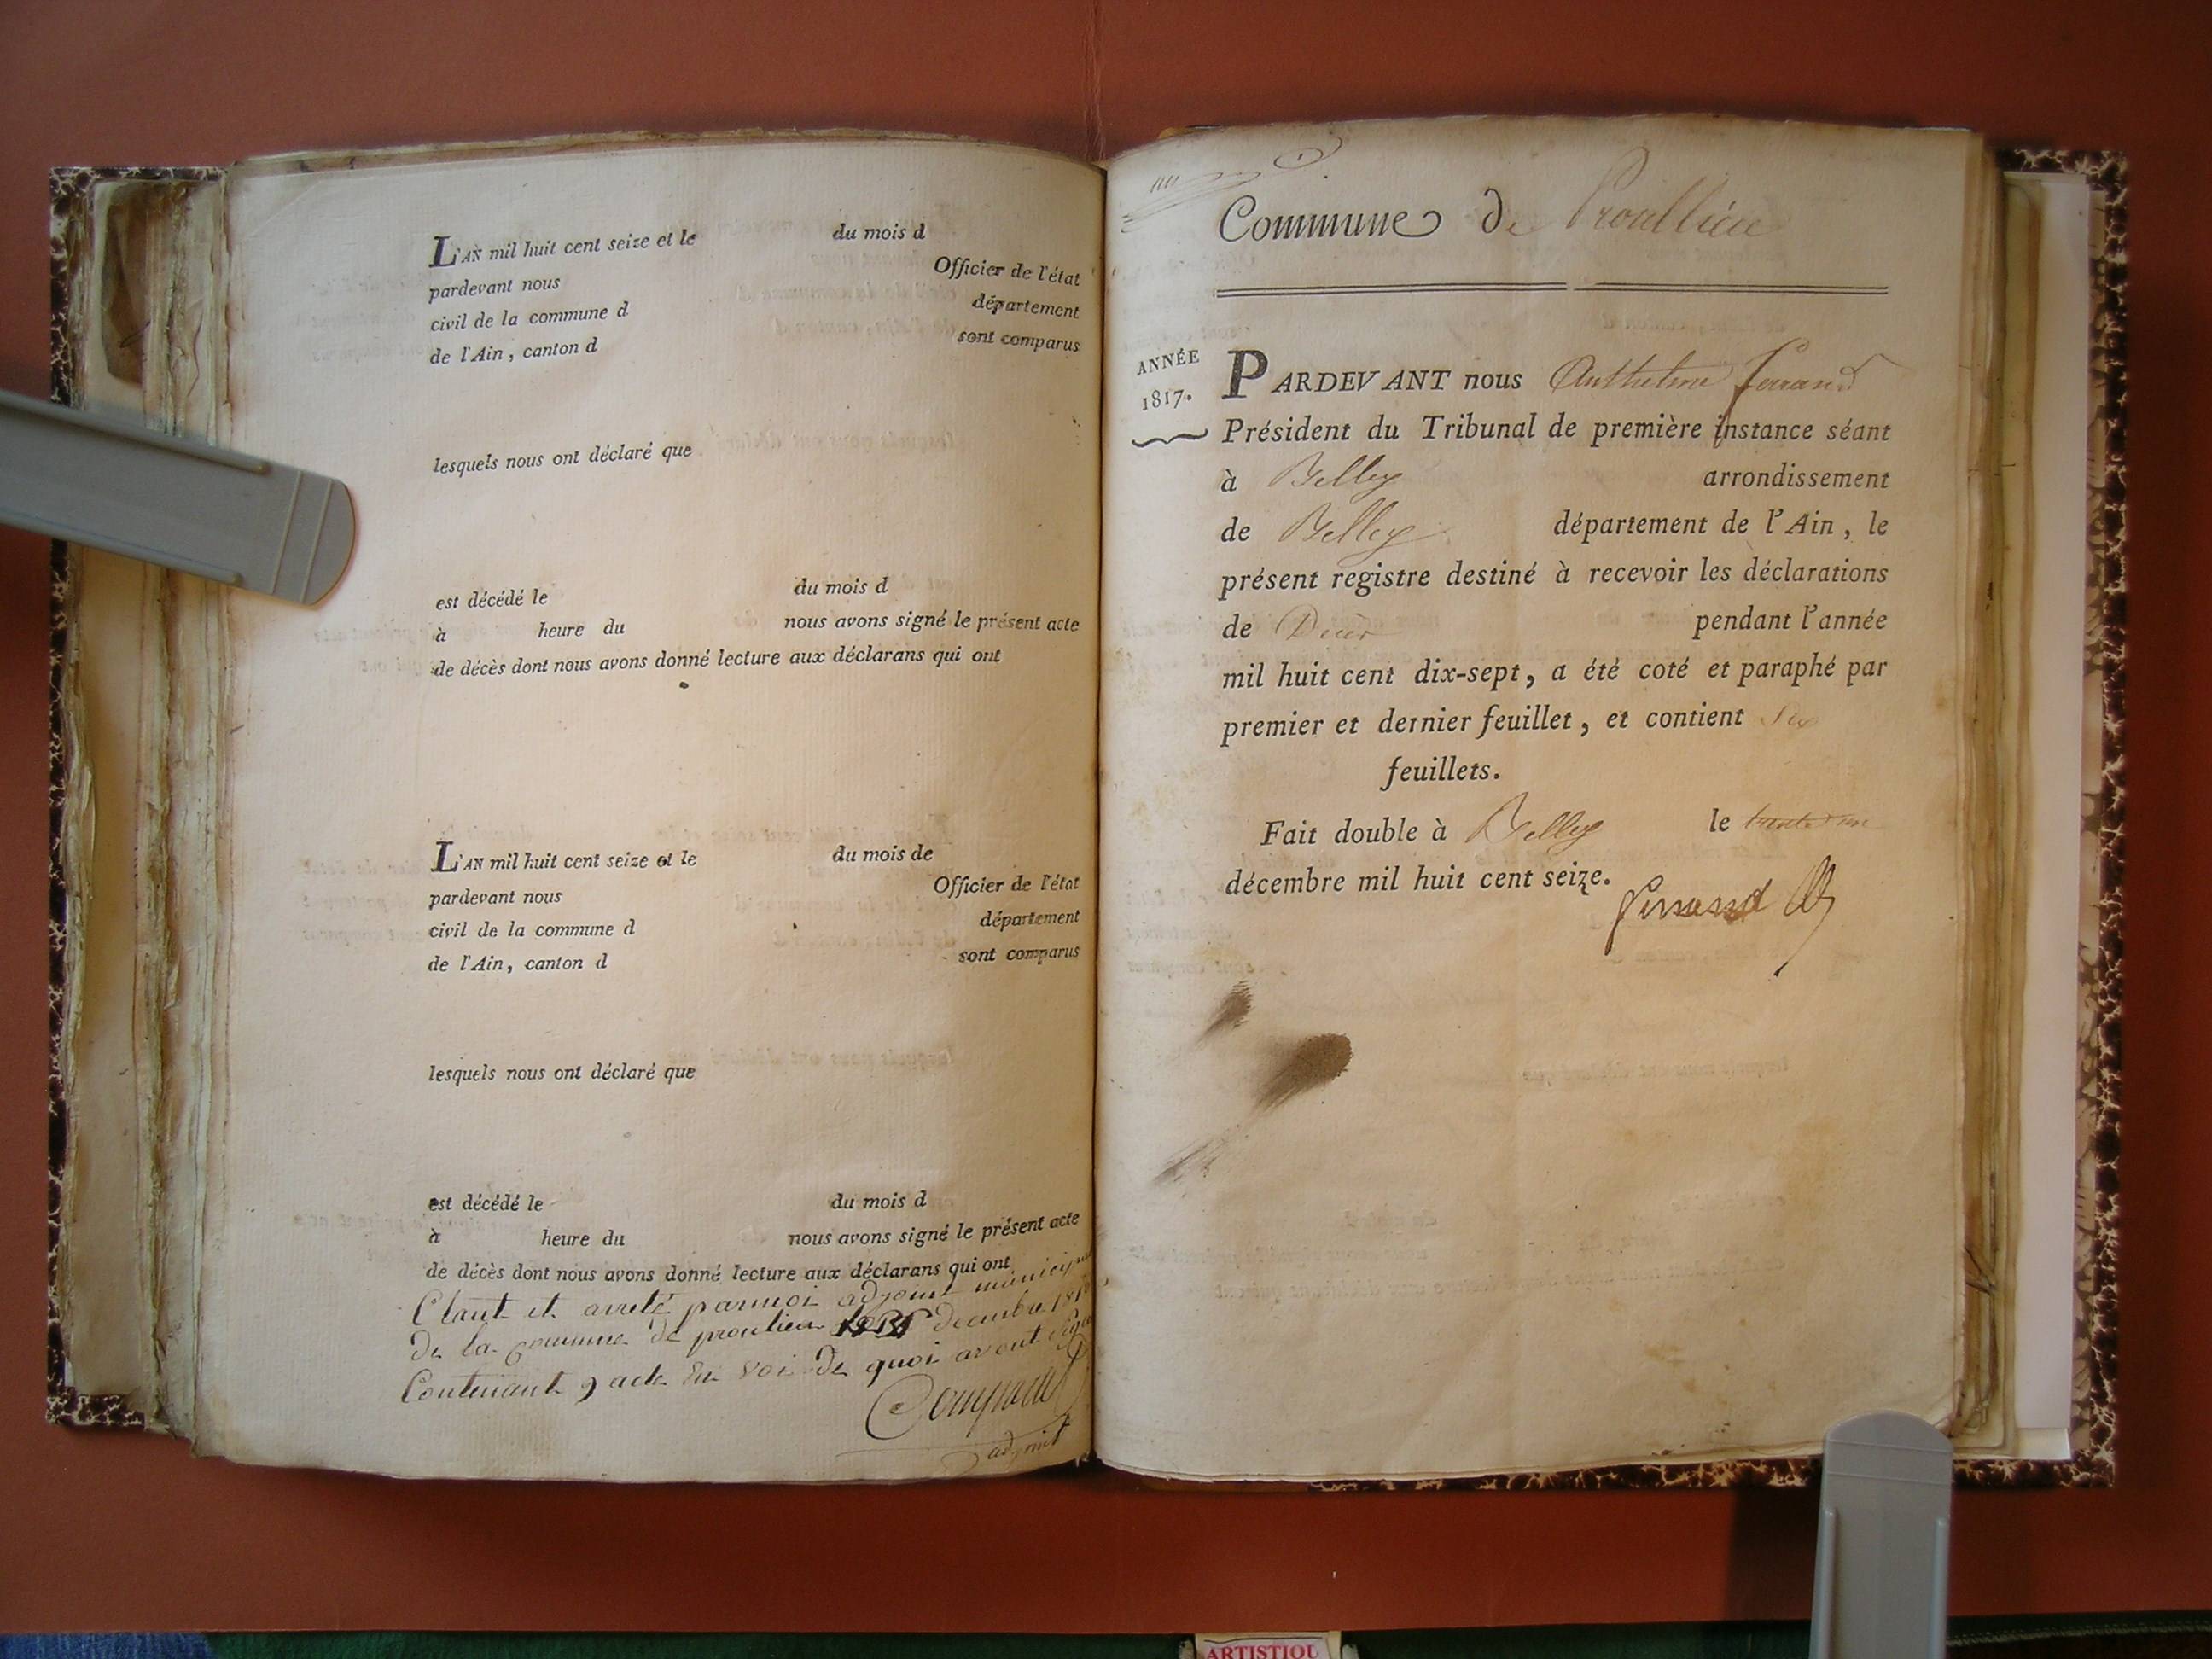 L'AN mil huit cent seize et le du mois d
pardevant nous Officier de l'état
civil de la commune d département
de l'Ain, canton d sont comparus
lesquels nous ont déclaré que
est décédé le du mois d
à heure du nous avons signé le présent acte
de décès dont nous avons donné lecture aux déclarans qui ont
L'AN mil huit cent seize et le du mois de
pardevant nous Officier de l'état
civil de la commune d département
de l'Ain, canton d sont comparus
lesquels nous ont déclaré que
est décédé le du mois d
à heure du nous avons signé le présent acte
de décès dont nous avons donné lecture aux déclarans qui ont
Clant et arreté parmoi adjoint
de la commune de proulieu decembre
Contenant 9 acte En foi de quoi avont
adjoint
Commune de Proullieu
ANNÉE
1817.
PARDEVANT nous Anthelme ferrand
Président du Tribunal de première instance séant
à Belley arrondissement
de Belley département de l'Ain, le
présent registre destiné à recevoir les déclarations
de Décès pendant l'année
mil huit cent dix-sept, a été coté et paraphé par
premier et dernier feuillet, et contient six
feuillets.
Fait double à Belley le trente un
décembre mil huit cent seize.
ferrand
ARTISTIQU